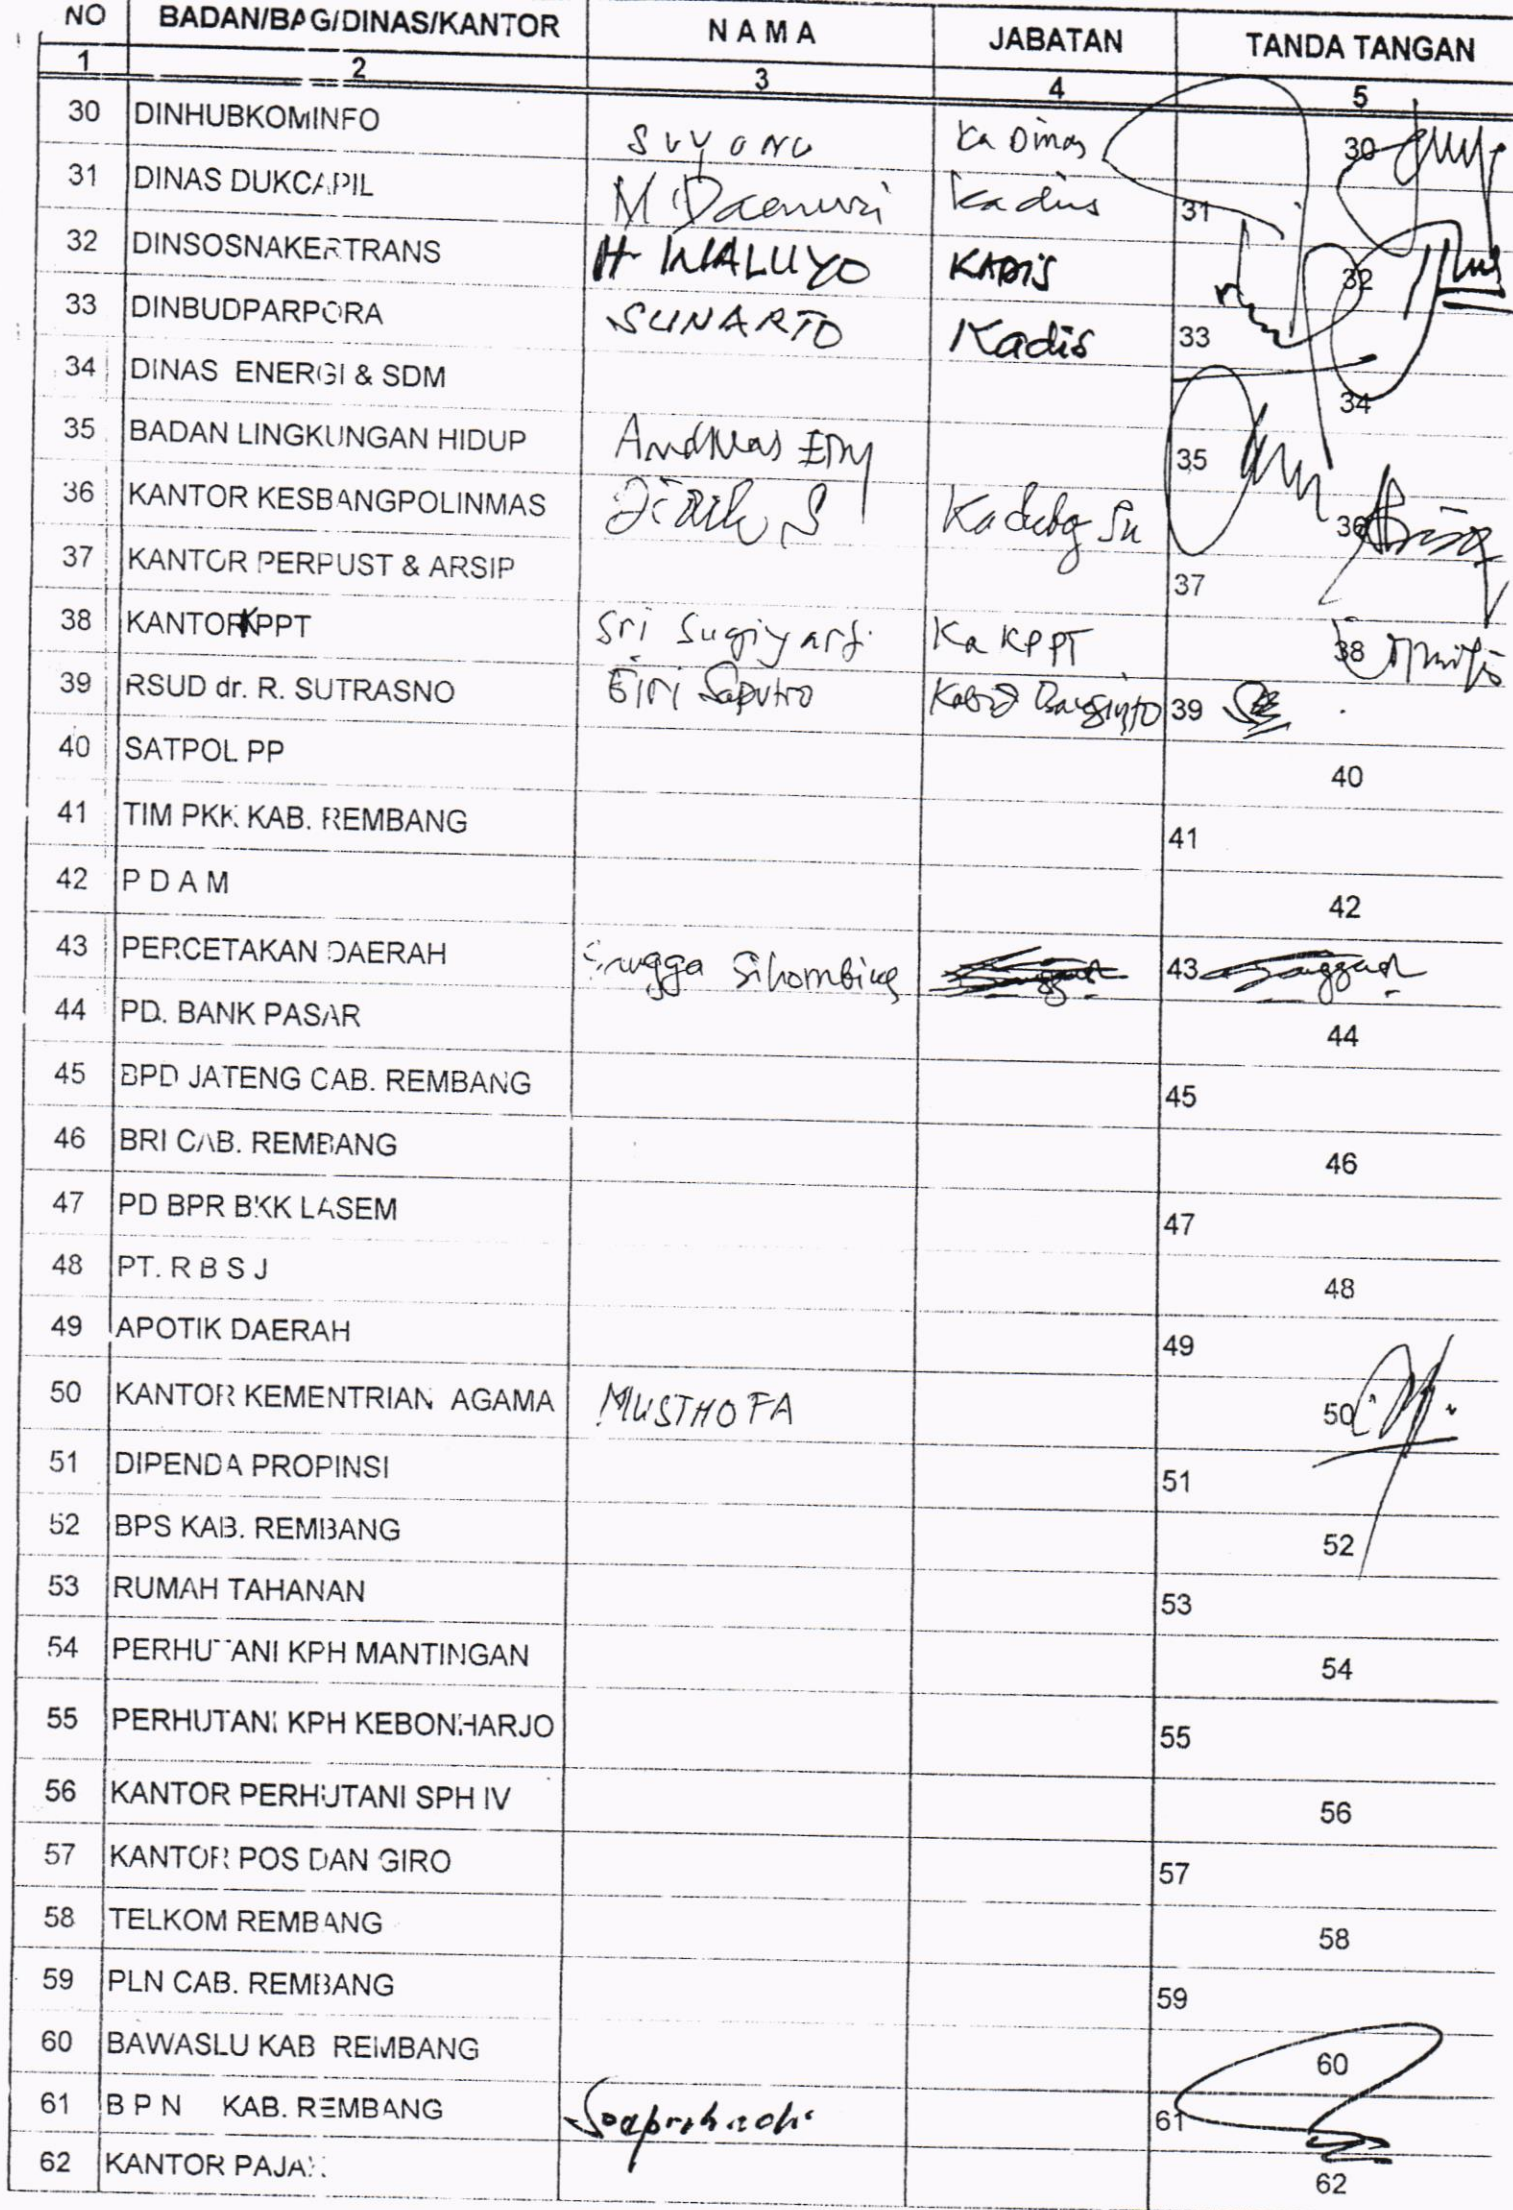 NO BADAN/BAG/DINAS/KANTOR N A M A JABATAN TANDA TANGAN
1 2 3 4 5
30 DINHUBKOMINFO Suyono Ka Dinas 30
31 DINAS DUKCAPIL M Daenuri Kadis 31
32 DINSOSNAKERTRANS H. WALUYO KADIS 32
33 DINBUDPARPORA SUNARTO Kadis 33
34 DINAS ENERGI & SDM 34
35 BADAN LINGKUNGAN HIDUP Andreas Edy 35
36 KANTOR KESBANGPOLINMAS S 36
37 KANTOR PERPUST & ARSIP 37
38 KANTOR KPPT Sri Sugiyarti Ka KPPT 38
39 RSUD dr. R. SUTRASNO Giri Saputro Kabid 39
40 SATPOL PP 40
41 TIM PKK KAB. REMBANG 41
42 P D A M 42
43 PERCETAKAN DAERAH Sihombing 43
44 PD. BANK PASAR 44
45 BPD JATENG CAB. REMBANG 45
46 BRI CAB. REMBANG 46
47 PD BPR BKK LASEM 47
48 PT. R B S J 48
49 APOTIK DAERAH 49
50 KANTOR KEMENTRIAN AGAMA MUSTHOFA 50
51 DIPENDA PROPINSI 51
52 BPS KAB. REMBANG 52
53 RUMAH TAHANAN 53
54 PERHUTANI KPH MANTINGAN 54
55 PERHUTANI KPH KEBONHARJO 55
56 KANTOR PERHUTANI SPH IV 56
57 KANTOR POS DAN GIRO 57
58 TELKOM REMBANG 58
59 PLN CAB. REMBANG 59
60 BAWASLU KAB REMBANG 60
61 B P N KAB. REMBANG 61
62 KANTOR PAJAK 62